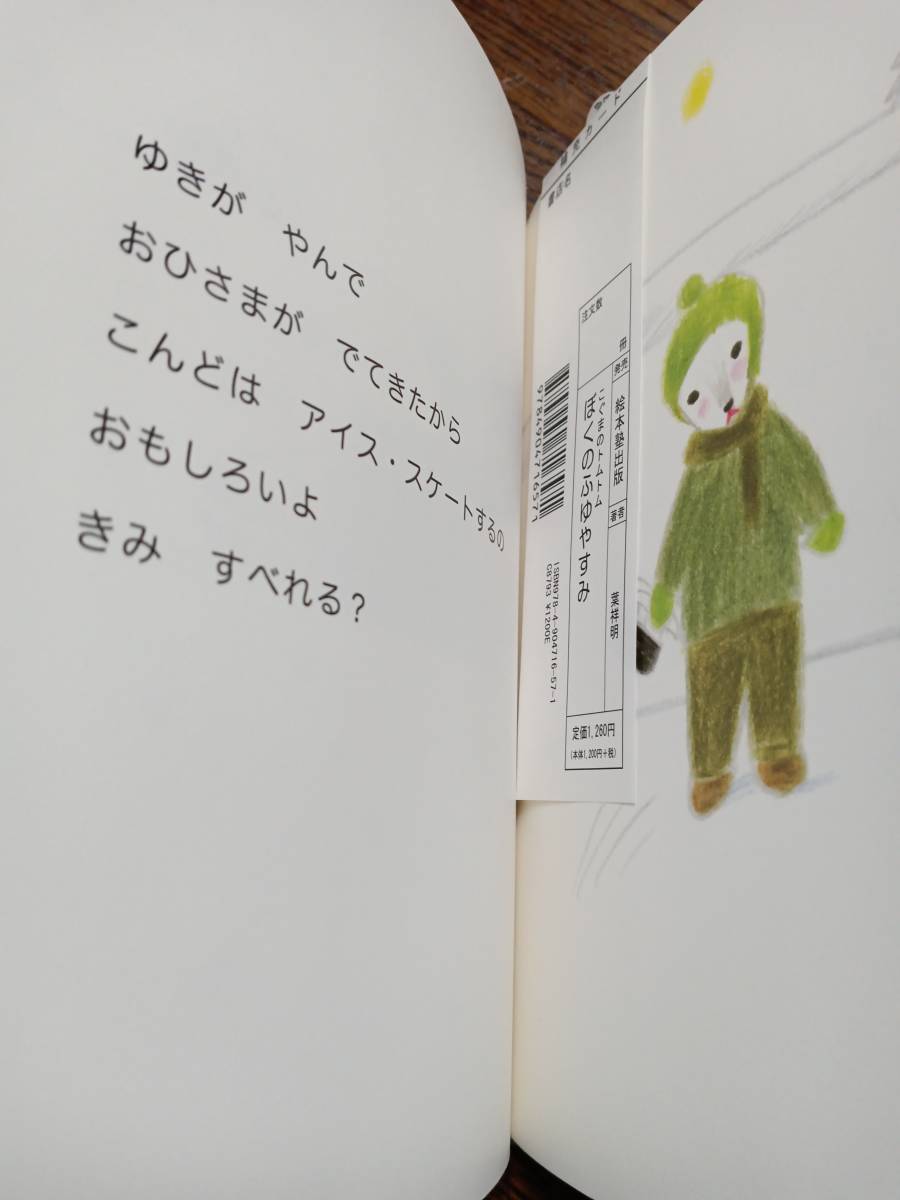 ゆきが　やんで
おひさまが　でてきたから
こんどは　アイス・スケートするの
おもしろいよ
きみ　すべれる?
書店名
注文数
冊
発売
絵本塾出版
こぐまのトムトム
ぼくのふゆやすみ
著者
葉祥明
定価1,260円
(本体1,200円+税)
9784904716571
ISBN978-4-904716-57-1
C8793 ¥1200E